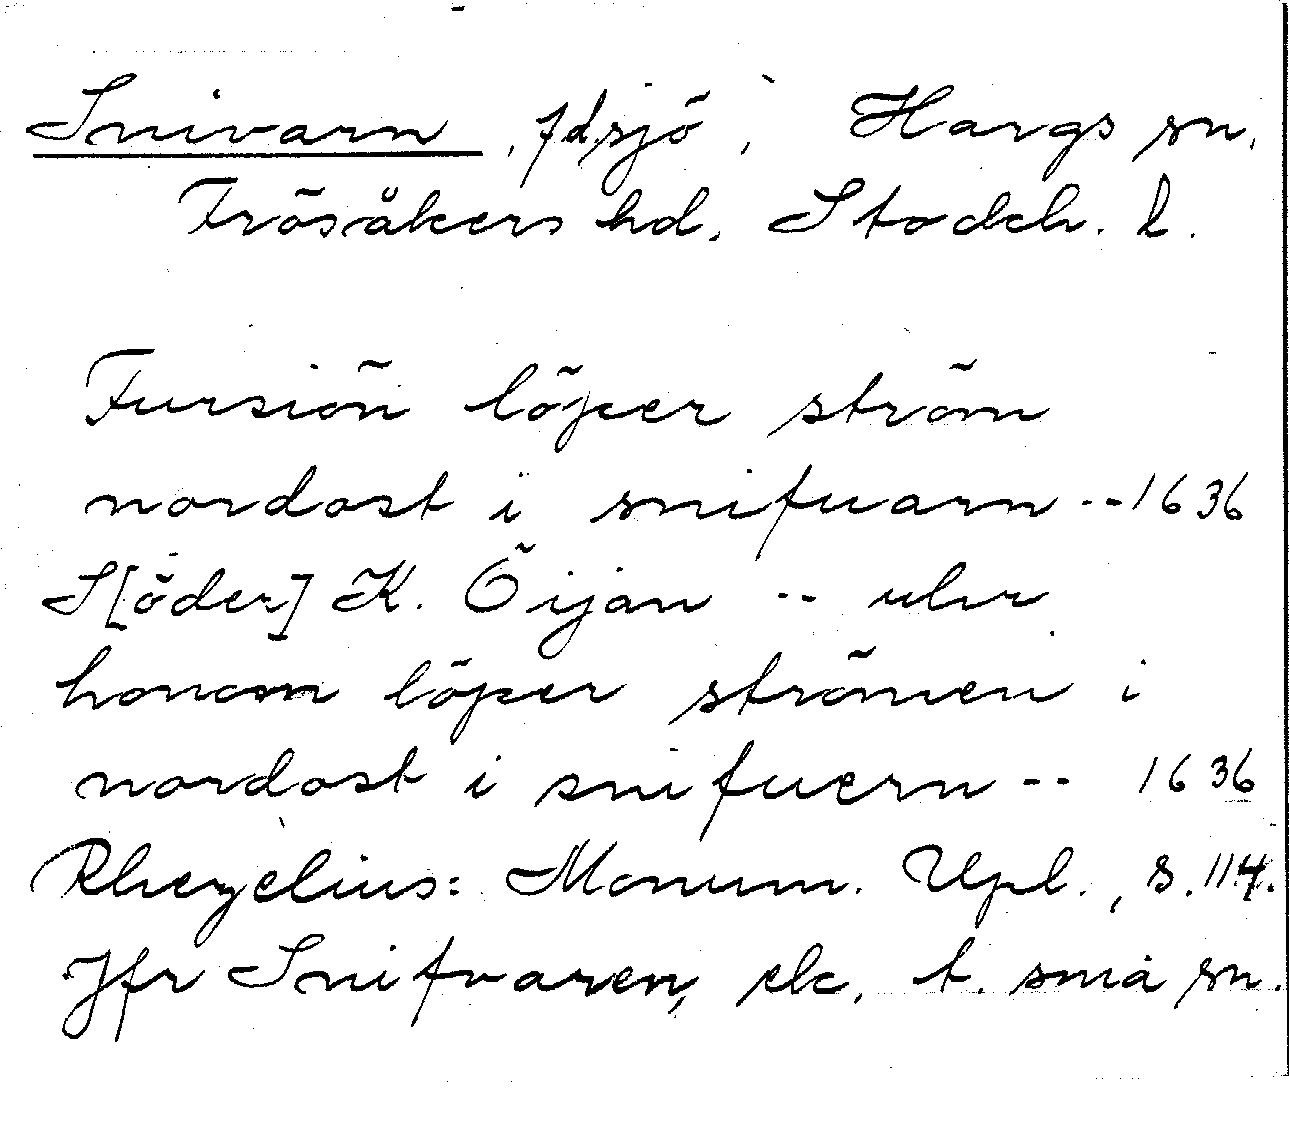 Snivarn, f.d. sjö, Hargs sn,
Frösåkers hd. Stockh. l.
Fursiön löper ström
nordost i snifuarn -- 1636
S[öder] K. Öijan -- uhr
honom löper strömen i
nordost i snifuern -- 1636
Rhezelius: Monum. Upl., s. 114.
Jfr Snifvaren, ek. t. små sn.